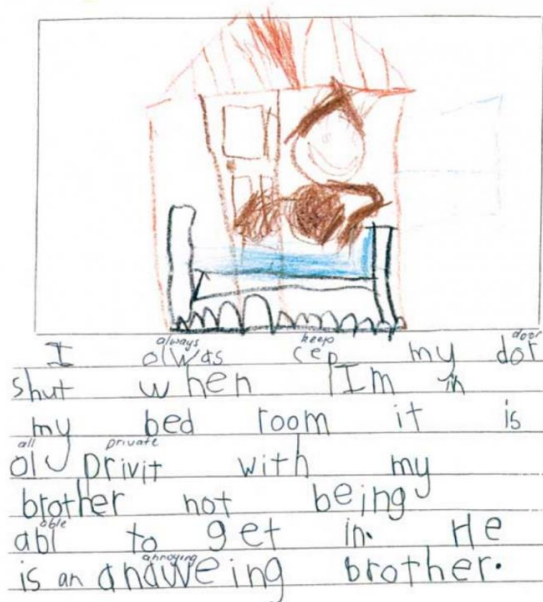 always keeps door
I olwas cep my dor
shut when I'm in
my bed room it is
all private
ol privit with my
brother not being
able
abl to get in. He
annoying
is an anaweing brother.